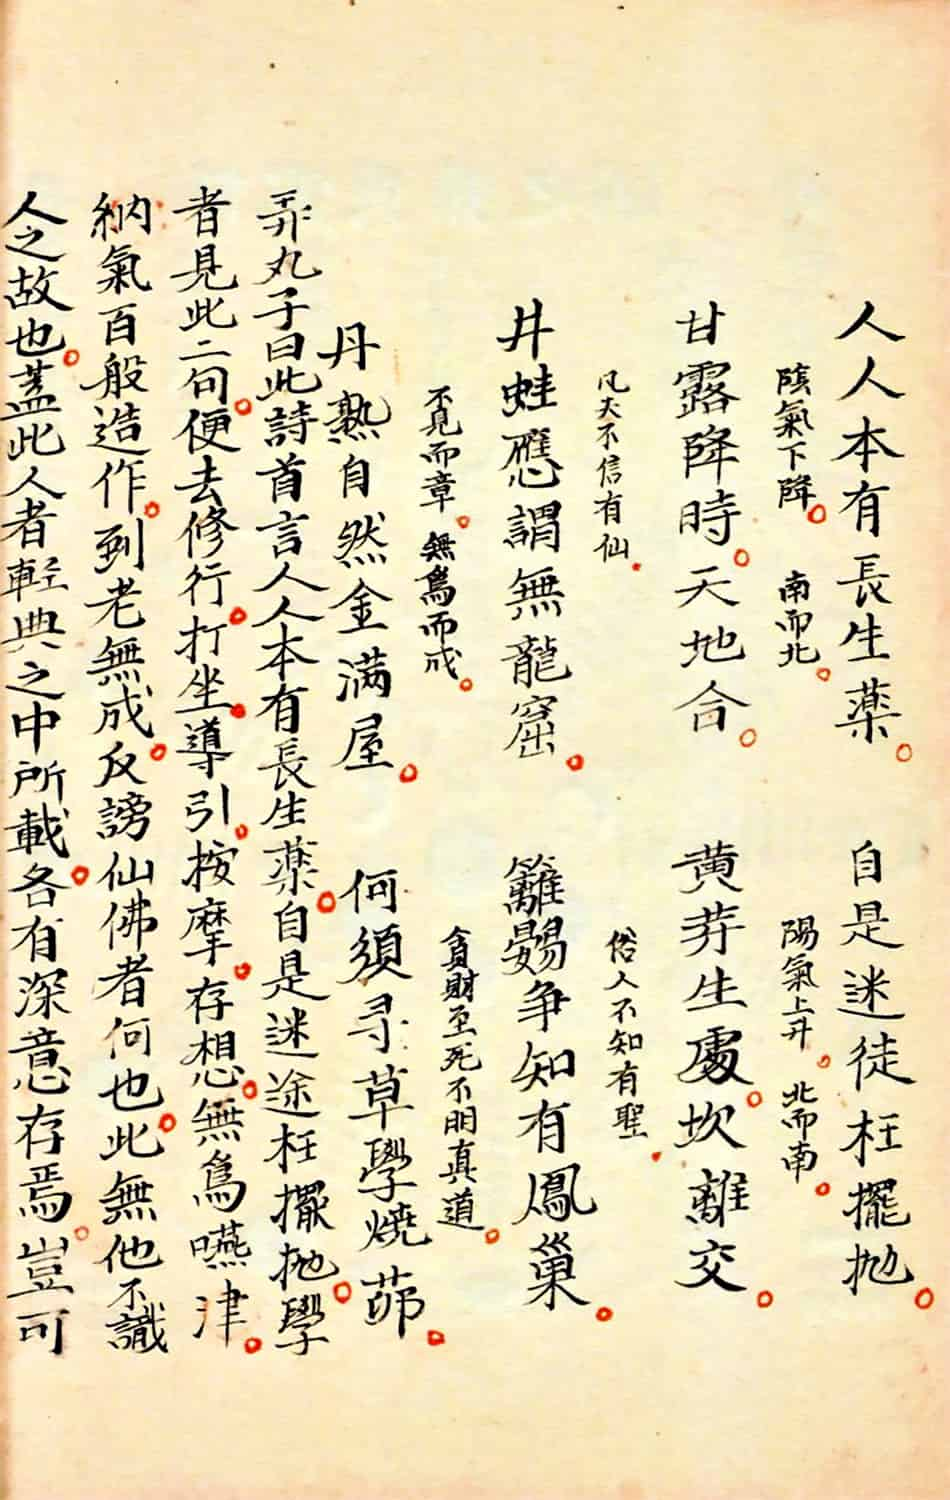 人人本有長生藥。自是迷徒枉擺抛。
陰氣下降。南而北。陽氣上升。北而南。
甘露降時。天地合。黄芽生處。坎離交。
凡夫不信有仙。俗人不知有聖。
井蛙應謂無龍窟。籬鷃争知有鳳巢。
不見而章。無為而成。貪財至死不明真道。
丹熟自然金满屋。何須寻草學燒茆。
弄丸子曰此詩首言人人本有長生藥。自是迷途枉擺抛。學
者見此二句。便去修行。打坐。導引。按摩。存想。無為嚥津。
納氣百般造作。到老無成。反謗仙佛者何也。此無他不識
人之故也。蓋此人者輕典之中所載。各有深意存焉。豈可